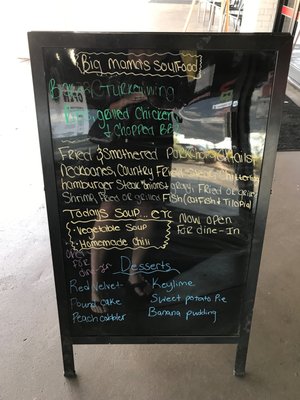 Big Mama's Soul Food
Baked Turkey Wing
BBQ
Chicken
& Chopped
Fried & Smothered Pork Chop, Oxtails,
Neckbones, Country Fried Steak, Chitterlings
hamburger Steak onions & gravy, Fried or grilled
Shrimp, Fried or grilled Fish (Catfish & Tilapia)
Todays Soup... etc
Now open
For dine-In
- Vegetable Soup
- Homemade Chili
Desserts
Red Velvet
Keylime
Pound cake
Sweet potato Pie
Peach cobbler
Banana pudding